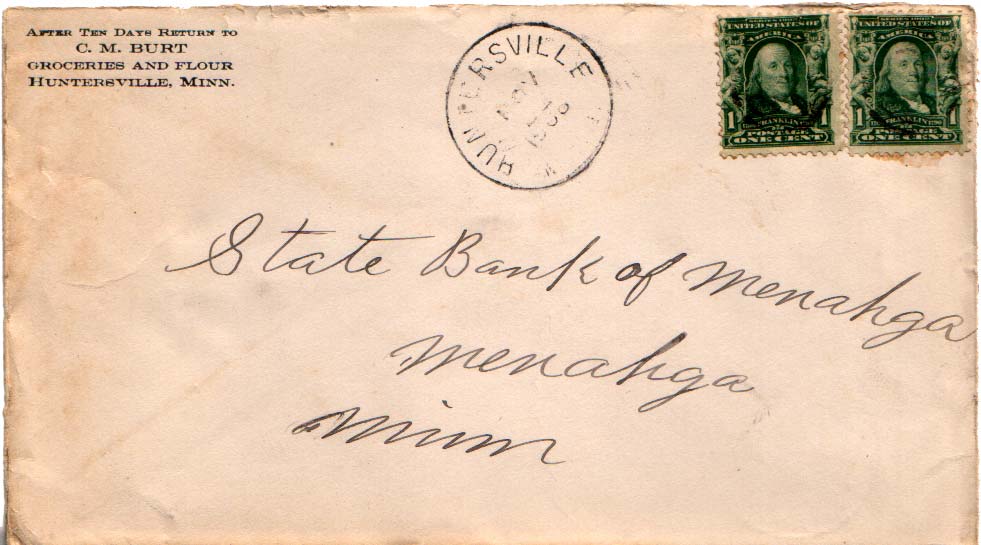 AFTER TEN DAYS RETURN TO
C. M. BURT
GROCERIES AND FLOUR
HUNTERSVILLE, MINN.
HUNTERSVILLE
SERIES 1902
UNITED STATES OF
AMERICA
1 FRANKLIN 1
POSTAGE
ONE CENT
SERIES 1902
UNITED STATES OF
AMERICA
1 FRANKLIN 1
POSTAGE
ONE CENT
State Bank of Menahga
Menahga
Minn